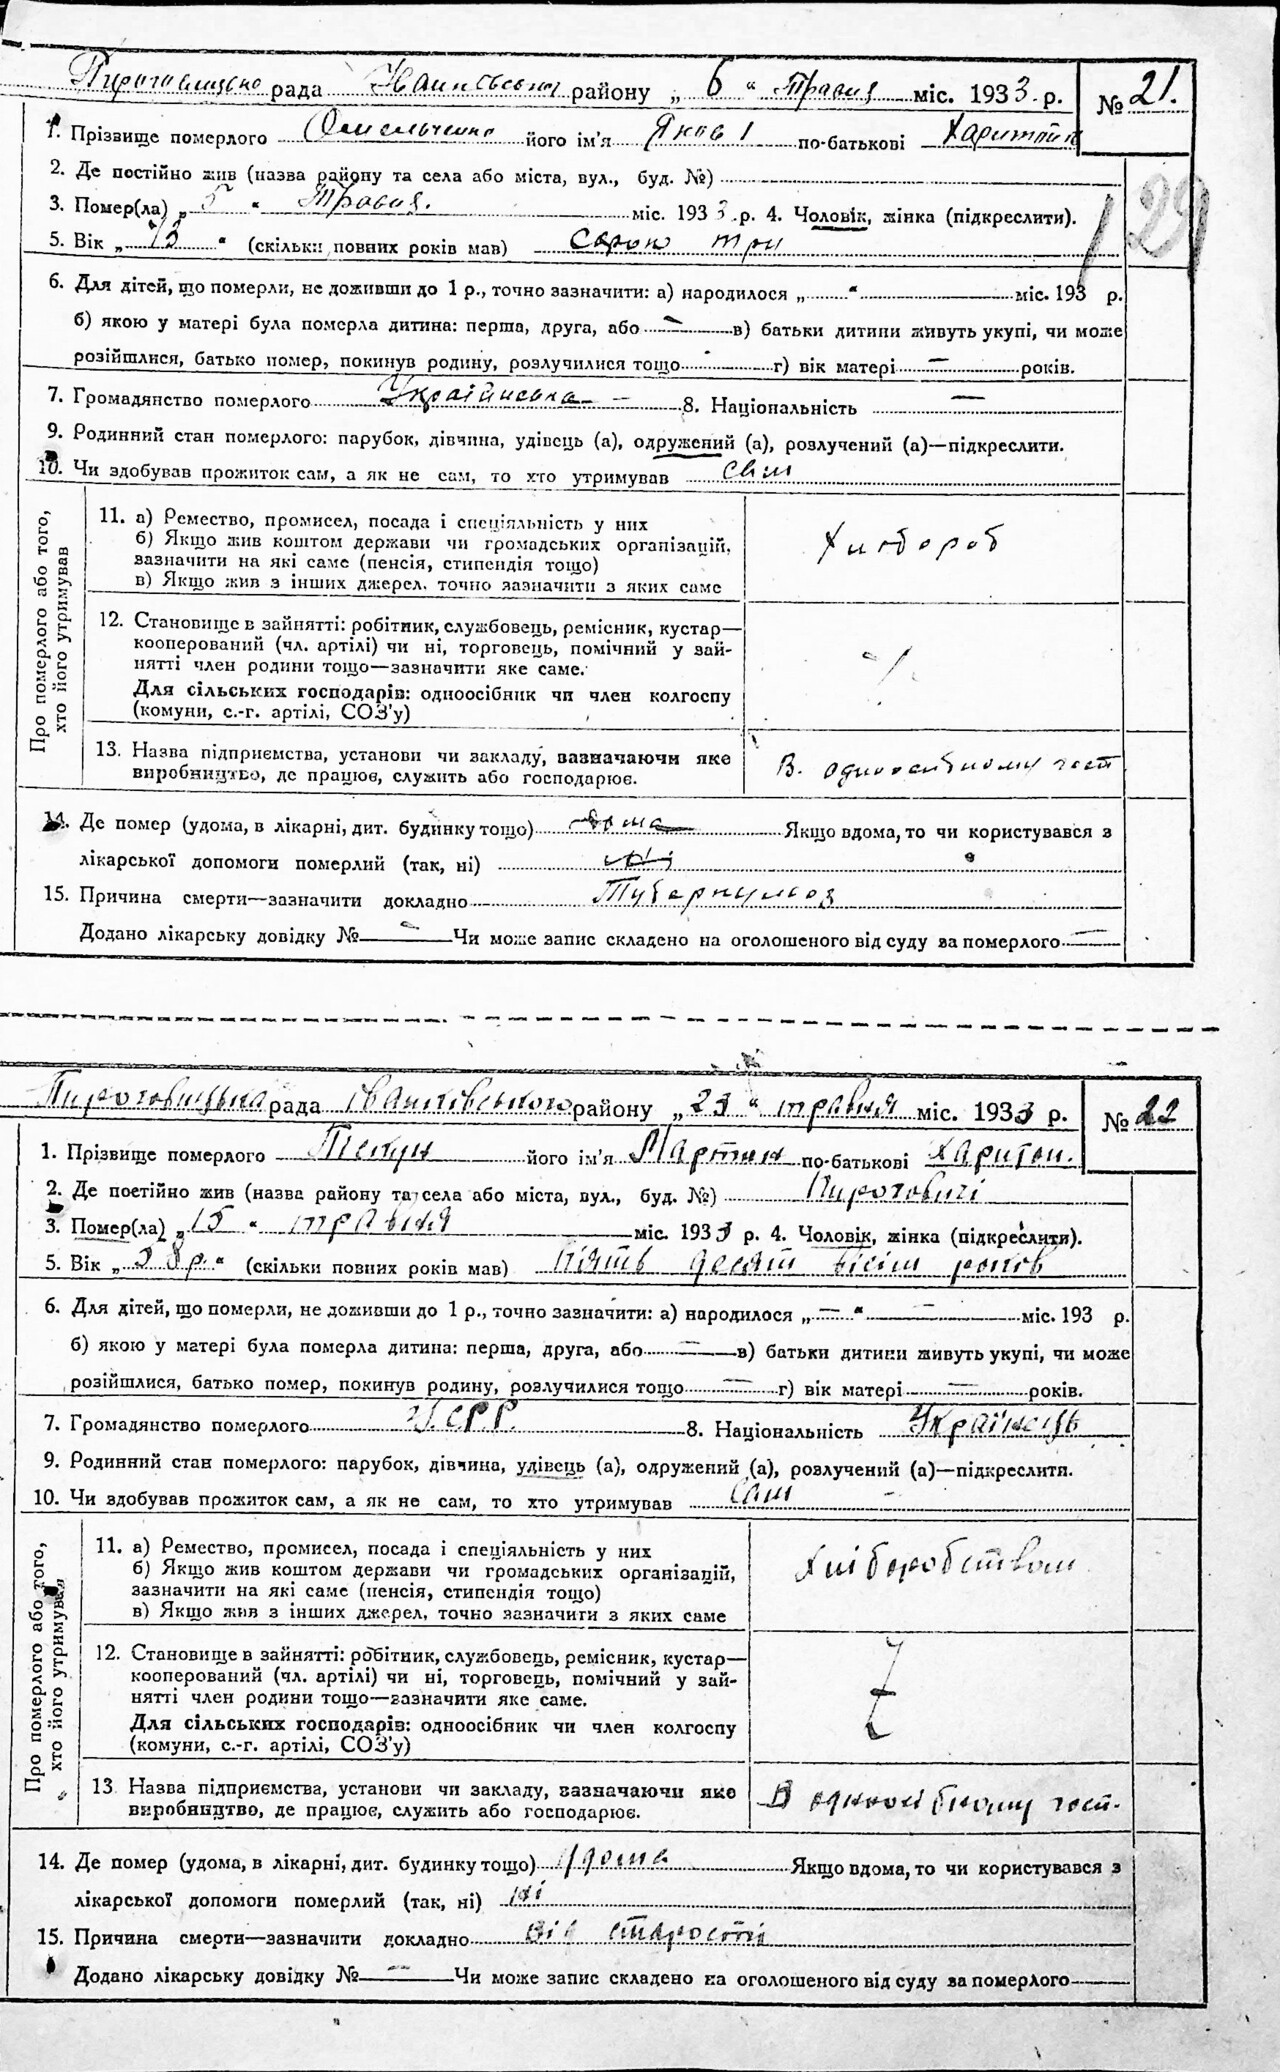 Пироговицька рада Іванківської району „ 6 “ Травня міс. 1933 р. № 21.
1. Прізвище померлого Омельченко його ім'я Яков по-батькові Харитон
2. Де постійно жив (назва району та села або міста, вул., буд. №)
3. Помер(ла) „ 5 “ Травня. міс. 1933 р. 4. Чоловік, жінка (підкреслити).
129
5. Вік „ 43 “ (скільки повних років мав) сорок три
6. Для дітей, що померли, не доживши до 1 р., точно зазначити: а) народилося „ “ міс. 193 р.
б) якою у матері була померла дитина: перша, друга, або — в) батьки дитини живуть укупі, чи може
розійшлися, батько помер, покинув родину, розлучилися тощо г) вік матері — років.
7. Громадянство померлого Українська — 8. Національність —
9. Родинний стан померлого: парубок, дівчина, удівець (а), одружений (а), розлучений (а)—підкреслити.
10. Чи здобував прожиток сам, а як не сам, то хто утримував сам
Про померлого або того, хто його утримував
11. а) Ремество, промисел, посада і спеціяльність у них
б) Якщо жив коштом держави чи громадських організацій,
зазначити на які саме (пенсія, стипендія тощо)
в) Якщо жив з інших джерел, точно зазначити з яких саме
Хлібороб
12. Становище в зайнятті: робітник, службовець, ремісник, кустар—
кооперований (чл. артілі) чи ні, торговець, помічний у зай-
нятті член родини тощо—зазначити яке саме.
Для сільських господарів: одноосібник чи член колгоспу
(комуни, с.-г. артілі, СОЗ'у)
13. Назва підприємства, установи чи закладу, зазначаючи яке
виробництво, де працює, служить або господарює.
В. одноосібному госп
14. Де помер (удома, в лікарні, дит. будинку тощо) дома Якщо вдома, то чи користувався з
лікарської допомоги померлий (так, ні) ні
15. Причина смерти—зазначити докладно Туберкульоз
Додано лікарську довідку № — Чи може запис складено на оголошеного від суду за померлого —
Пироговицька рада Іванківського району „ 23 “ травня міс. 1933 р. № 22
1. Прізвище померлого його ім'я Мартин по-батькові Харитон.
2. Де постійно жив (назва району та села або міста, вул., буд. №) Пироговичі
3. Помер(ла) „ 15 “ травня міс. 1933 р. 4. Чоловік, жінка (підкреслити).
5. Вік „ 58 р. “ (скільки повних років мав) пять десят вісім років
6. Для дітей, що померли, не доживши до 1 р., точно зазначити: а) народилося „ — “ — міс. 193 р.
б) якою у матері була померла дитина: перша, друга, або — в) батьки дитини живуть укупі, чи може
розійшлися, батько помер, покинув родину, розлучилися тощо — г) вік матері — років.
7. Громадянство померлого У.СРР. 8. Національність Українець
9. Родинний стан померлого: парубок, дівчина, удівець (а), одружений (а), розлучений (а)—підкреслити.
10. Чи здобував прожиток сам, а як не сам, то хто утримував Сам
Про померлого або того, хто його утримував
11. а) Ремество, промисел, посада і спеціяльність у них
б) Якщо жив коштом держави чи громадських організацій,
зазначити на які саме (пенсія, стипендія тощо)
в) Якщо жив з інших джерел, точно зазначити з яких саме
Хліборобством
12. Становище в зайнятті: робітник, службовець, ремісник, кустар—
кооперований (чл. артілі) чи ні, торговець, помічний у зай-
нятті член родини тощо—зазначити яке саме.
Для сільських господарів: одноосібник чи член колгоспу
(комуни, с.-г. артілі, СОЗ'у)
13 Назва підприємства, установи чи закладу, зазначаючи яке
виробництво, де працює, служить або господарює.
В одноосібному госп.
14. Де помер (удома, в лікарні, дит. будинку тощо) Удома Якщо вдома, то чи користувався з
лікарської допомоги померлий (так, ні) ні
15. Причина смерти—зазначити докладно Від старости
Додано лікарську довідку № — Чи може запис складено на оголошеного від суду за померлого